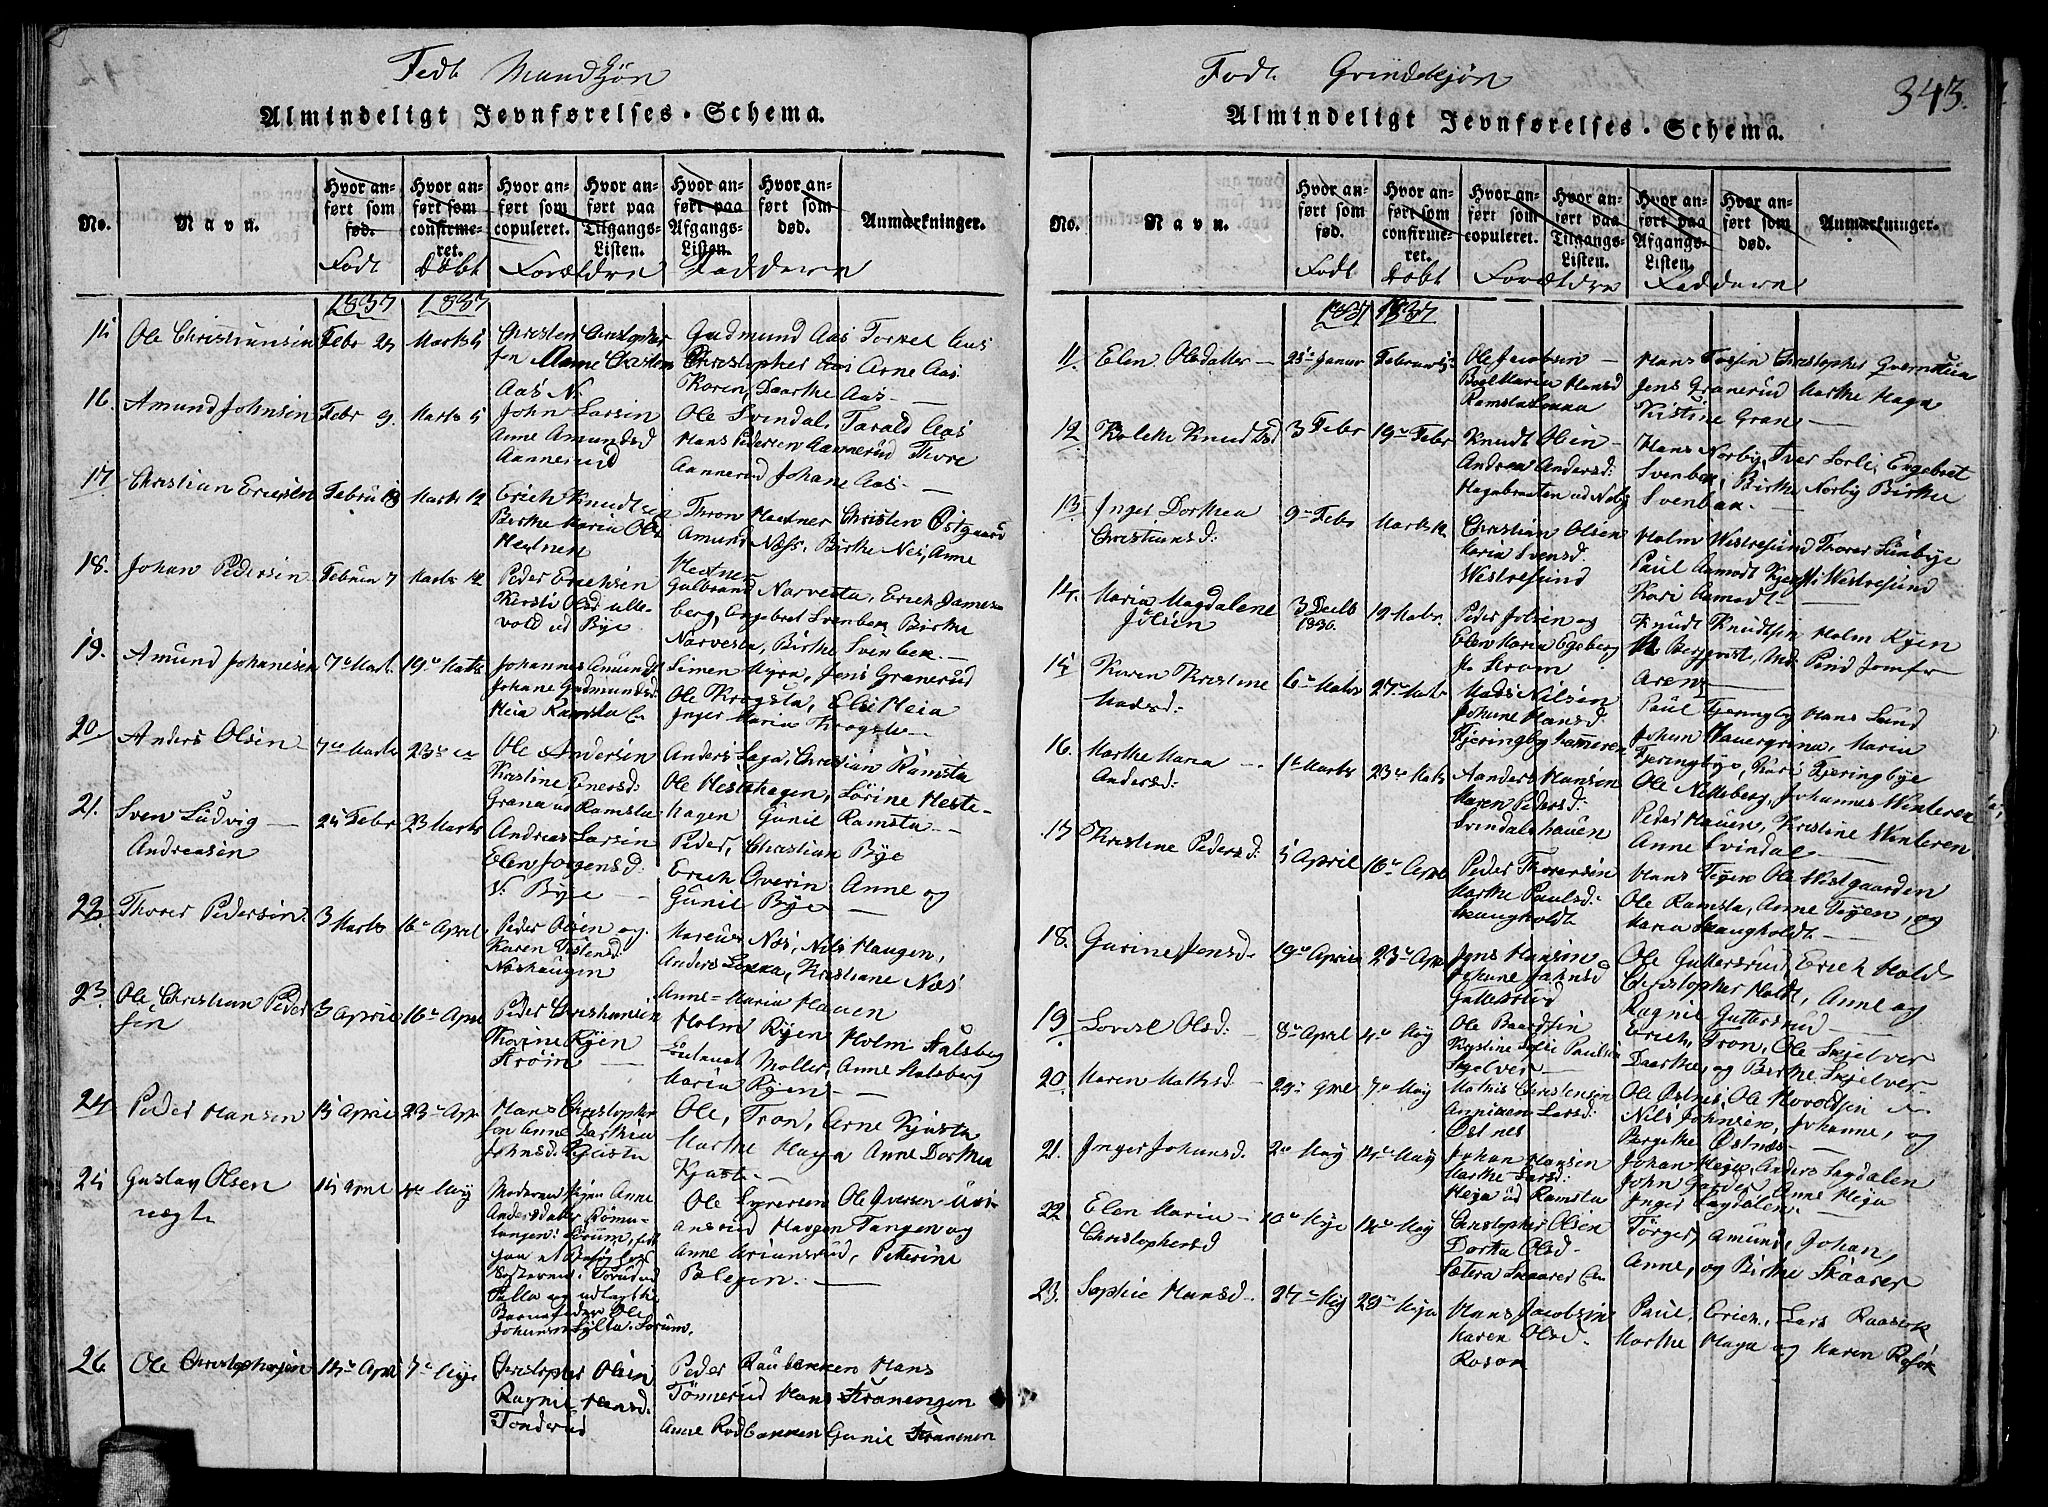 Fodt Mandkjøn
Almindeligt Jevnførelses-Schema.
No.
Navn.
Hvor an-
ført som
fød.
Hvor an-
ført som
confirme-
ret.
Hvor an-
ført som
copuleret.
Hvor an-
ført paa
Tilgangs-
Listen.
Hvor an-
ført paa
Afgangs-
Listen.
Hvor an-
ført som
død.
Anmærkninger.
Fodt Døbt Forældre Fadderne
1837 1837
15 Ole Christiansen Febr 25 Marts 5
Christen Christopher
sen
Aas N.
Gudmund Aas Aas
Christopher Aas Arne Aas
Karen, Daarthe Aas
16. Amund Johnsen Febr 9. Marts 5
John Larsen
Anne Amundsd
Aannerud
Ole Svendal, Tarald Aas
Hans Pedersen Aannerud Thore
Aannerud Johane Aas
17 Christian Ericsen Februa 13 Marts 12
Erich Knudtsen
Birthe Maria Ols
Hextner
Thron Hextner Christen Østgaard
Amund Næss, Birthe Nes, Anne
Hextner
18. Johan Pedersen Februa 7 Marts 12
Peder Erichsen
Kersti Olsd ulle-
vold ud Bye
Gulbrand Narvesta, Erich James-
berg, Engebret Svenbek Birthe
Narvesta, Birthe Svenbek
19. Amund Johanesen 7de Mart 19de Marts
Johannes Amunds
Johane Gudmundsd:
Heia Ramsta
Simen Myra, Jens Granerud
Ole Krogsta, Eli Heia
Inger Maria Krogsta
20 Anders Olsen 7de Marts 23de
Ole Andersen
Kristine Enersd:
Grana ud Ramsta
Anders Laga, Christian Ramsta
Ole Hestehagen, Sørine Heste-
hagen Gunil Ramsta
21. Sven Ludvig 25 Febr 23 Marts
Andreasen
Andreas Larsen
Elen Jorgensd:
N. Bye
Peder, Christian Bye
Erich Qverin Anne og
Gunil Bye
22 Thorer Pedersen 3 Marts 16de April
Peder Olsen og
Karen Tostensd:
Næshaugen
Marcus Næs, Nils Haugen,
Anders Løkka, Kristiane Næs
Anne-Maria Hauen
23. Ole Christian Peder 3 April 16de April
sen
Peder Cristiansen
Thorine Ryen
Strøm
Holm Ryen Holm Aalsberg
Moller, Anne Aalsberg
Maria Ryen
24 Peder Hansen 15 April 23de Apr.
Hans Christopher
sen Anne Darthea
Johnsd. Kjusta
Ole, Tron, Arne Kjusta
Marthe Haga Anne Dorthea
Kjusta
25 Gustav Olsen 14 April 4de May
uægte
Moderen Pigen Anne
Andersdatter Rømu-
tangen i Sorum,
paa et Besøg hos
Søsteren i Torud ud
Falla og udlagt
Barnefader Ole
Johansen Sylta, Sorum.
Ole Syversen Ole Iversen
Hagen Tangen og
Anne Petterine
26. Ole Christophersen 14de April 7de Mye
Christopher Olsen
Ragnil Hansd:
Tonderud
Peder Raubakken Hans
Tønnerud Hans Kranengen
Anne Rodbakken Gunil Kranenen
343.
Fodt Qvindekjøn
Almindeligt Jevnførelses-Schema.
No.
Navn.
Hvor an-
ført som
fød.
Hvor an-
ført som
confirme-
ret.
Hvor an-
ført som
copuleret.
Hvor an-
ført paa
Tilgangs-
Listen.
Hvor an-
ført paa
Afgangs-
Listen.
Hvor an-
ført som
død.
Anmærkninger.
Fodt Døbt Forældre Fadderne
1837 1837
11. Elen Olsdatter 25de Januar Februar
Ole Jacobsen
Boel Maria Hansd
Ramsta Løkka
Hans Christopher Qvernstua
Jens Granerud Marthe Haga
Kistine Gran
12 Bolethe Knudtsd 3 Febr 19de Febr
Knudt Olsen
Andrea Andersd:
Hagabraaten ud Norby
Hans Norby, Iver Sorli, Engebret
Svenbek, Birthe Norby Birthe
Svenbek
13. Inger Dorthea 9de Febr Marts 12
Christiansd:
Christian Olsen
Maria Svensd
Westresund
Holm Westresund Thorer Sunbye
Paul Aamodt Westresund
Kari Aamodt
14. Maria Magdalene 3 Decb 19 Marts.
Jølsen 1836.
Peder Jolsen og
Elen Maria Egeberg
Strøm
Knudt Knudtsen Holm Ryen
Bergqvist, Md. Pind Jomfr
Arenz
15 Karen Kristine 6te Marts 27de Marts
Madsd:
Mads Nilsen
Johane Hansd:
Fjeringby
Paul Fjeringby Hans Lund
Johan Hauergrina, Maria
Fjeringbye, Kari Fjeringbye
16. Marthe Maria 1te Marts 23de Marts
Andersd:
Aanders Hansen
Maren Pedersd:
Svindalshauen
Ole Nittesberg, Johannes Winteren
Peder Hauen, Kristine Winteren
Anne Svindal
17 Kristine Pedersd: 5 April 16de April
Peder Thorersen
Marthe Paulsd:
Skaugholdt
Hans Tøyen Ole Westgaarden
Ole Ramsta, Anne Tøyen, og
Maria Skaugholdt
18. Gurine Jensd. 19de April 23de Apr
Jens Hansen
Johane Jahnsd
Guttersrud
Ole Guttersrud, Erich Holdt
Christopher Holdt, Anne og
Ragnil Guttersrud
19 Lovise Olsd: 8de April 4de May
Ole Baardsen
Kristine Sofie Paulsen
Skjelver
Erich, Tron, Ole Skjelver
Daarthe, og Birthe Skjelver
20 Maren Mathsd 29de April 7de May
Mathis Christensen
Anniken Larsd:
Østnes
Ole Østnis, Ole Hovoldsen
Nils Johnsen, Johanne, og
Bergithe Østnes
21. Inger Johansd. 2de May 14de May
Johan Hansen
Marthe Larsd:
Heja ud Ramsta
Johan Heja, Anders Lagdalen
John Garder Anne Heja
Inger Lagdalen
22 Elen Maria 10de Mye 14de May
Christophersd
Christopher Olsen
Dortea Olsd
Sætera Skaarer
Tørger, Amund, Johan,
Anne, og Birthe Skaarer
23. Sophie Hansd 27de May 29de Mye
Hans Jacobsen
Karen Olsd
Rosok
Paul, Erich, Lars Raasok
Marthe Haga og Karen Rosok